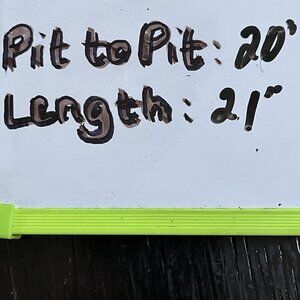 Pit to Pit: 20"
Length: 21"